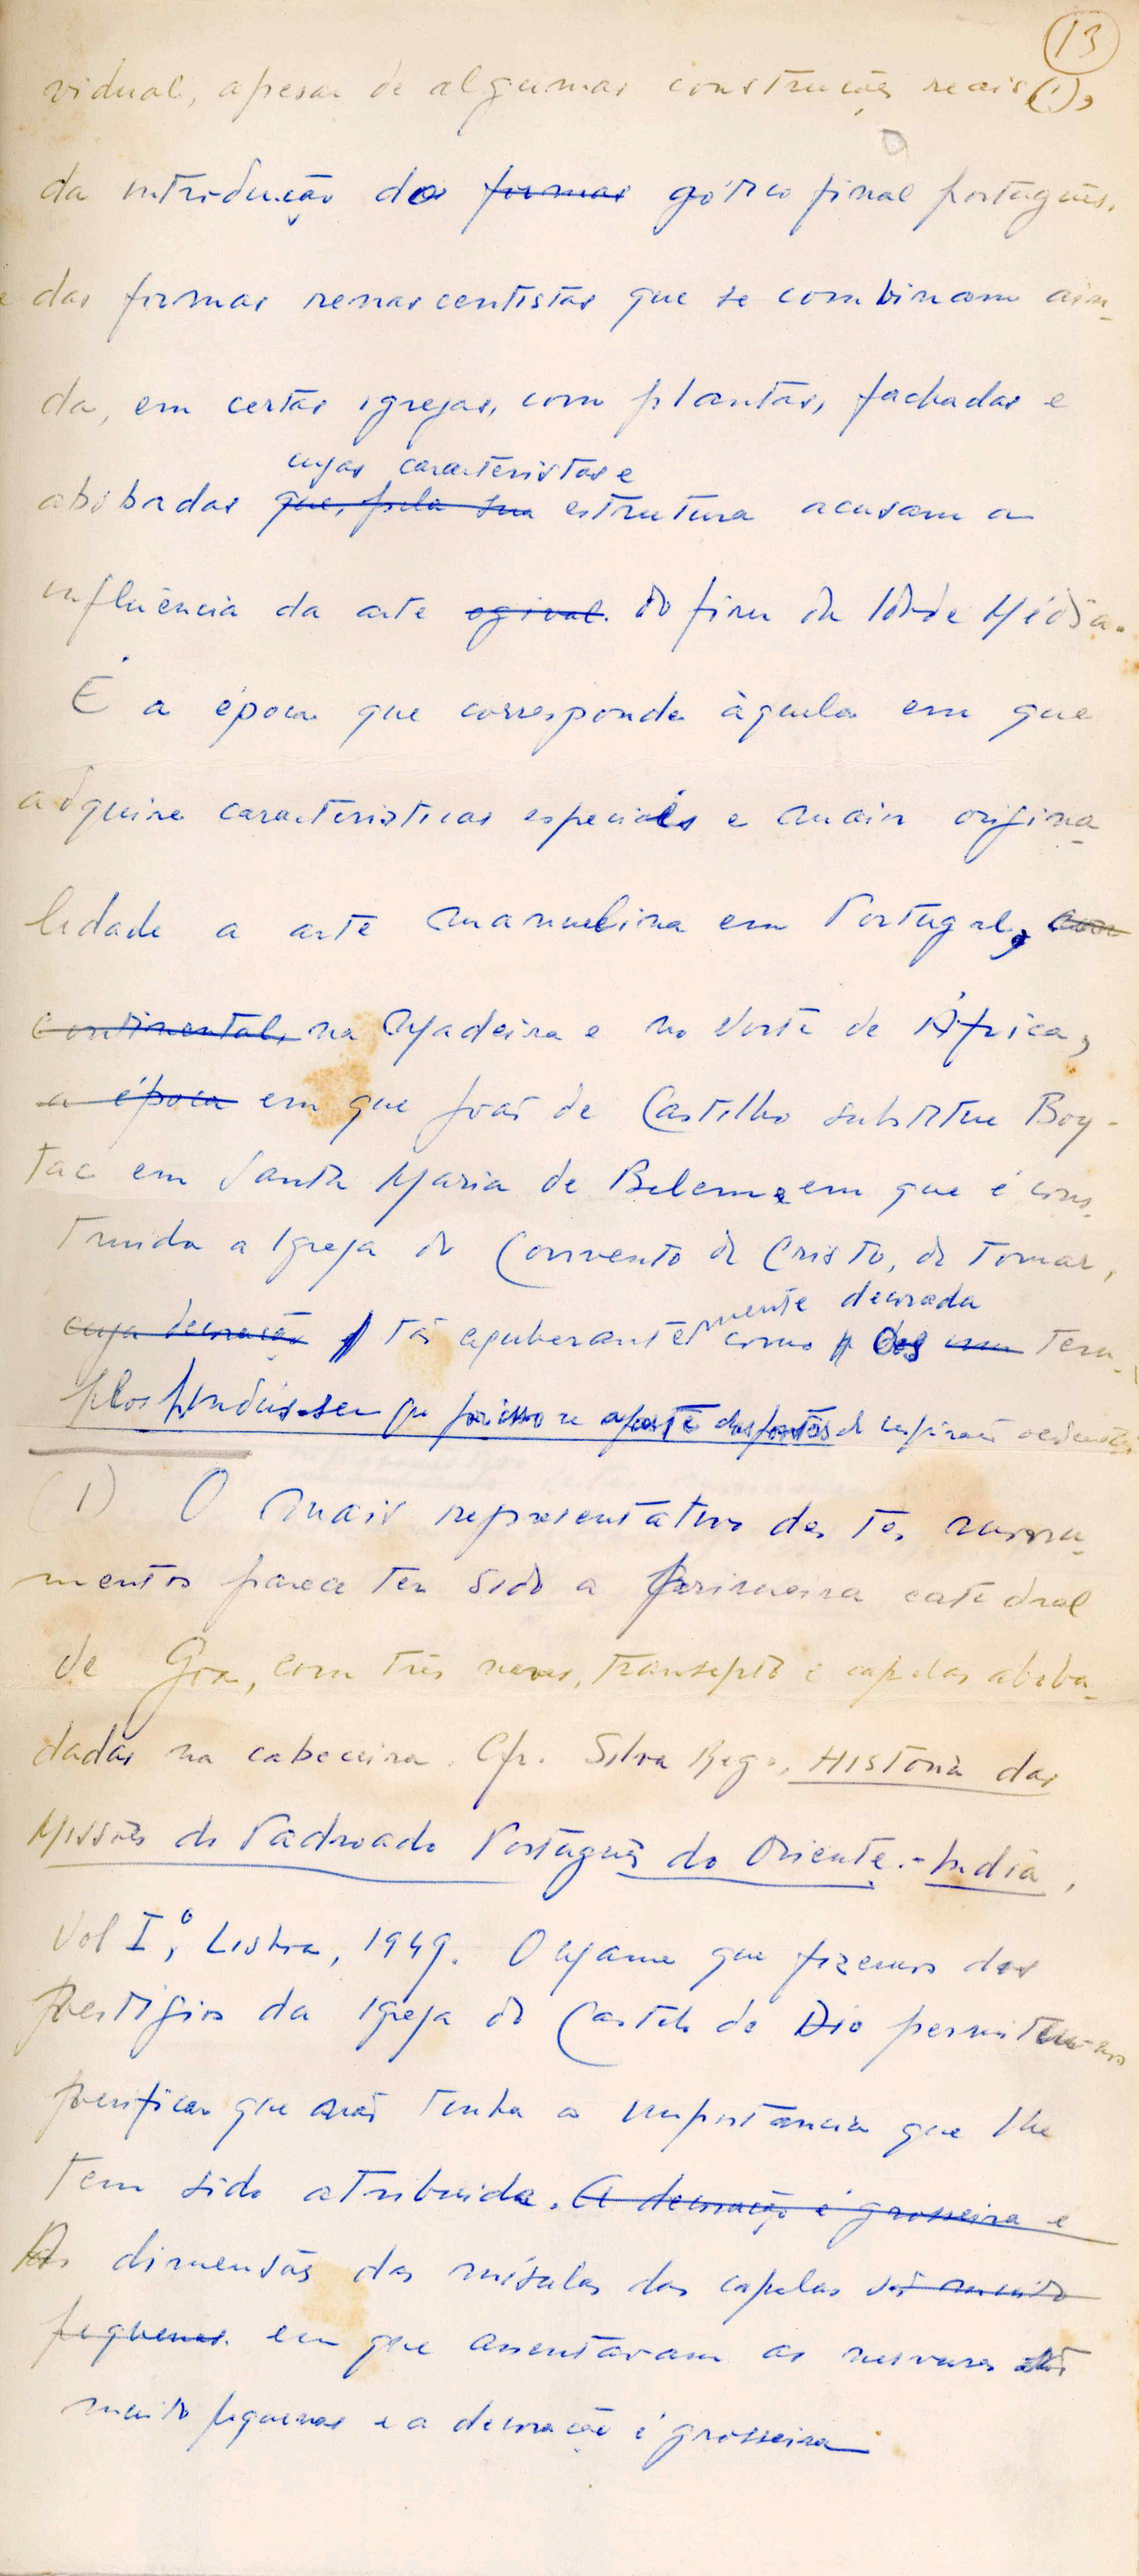 13
vidual, apesar de algumas construções reais (1),
da introdução do formas gótico final português,
e das formas renascentistas que se combinam ain-
da, em certas igrejas, com plantas, fachadas e
cujas caracteristas e
abóbadas que, pela sua estrutura acusam a
influência da arte ogival. do fim da Idade Média.
É a época que corresponde àquela em que
adquire características especiais e maior origina-
lidade a arte manuelina em Portugal,
continental, na Madeira e no Norte de África,
a época em que João de Castilho substitue Boy-
tac em Santa Maria de Belem e em que é cons-
truida a Igreja do Convento de Cristo, de Tomar,
mente decorada
cuja decoração tão exuberante como dos um tem-
plos hindús. sem que por isso se afaste das fontes de inspiração
(1) O mais representativo des tes monu-
mentos parece ter sido a primeira catedral
de Goa, com três naves, transepto e capelas aboba-
dadas na cabeceira. Cfr. Silva Rego, História das
Missões do Padroado Português do Oriente. - India,
Vol I,º Lisboa, 1949. O exame que fizemos dos
vestígios da Igreja do Castelo de Dio
verificar que não tenha a importância que lhe
tem sido atribuida. A decoração é grosseira e
As dimensões das mísulas das capelas são muito
pequenas. em que assentavam as nervuras são
muito pequenas e a decoração é grosseira